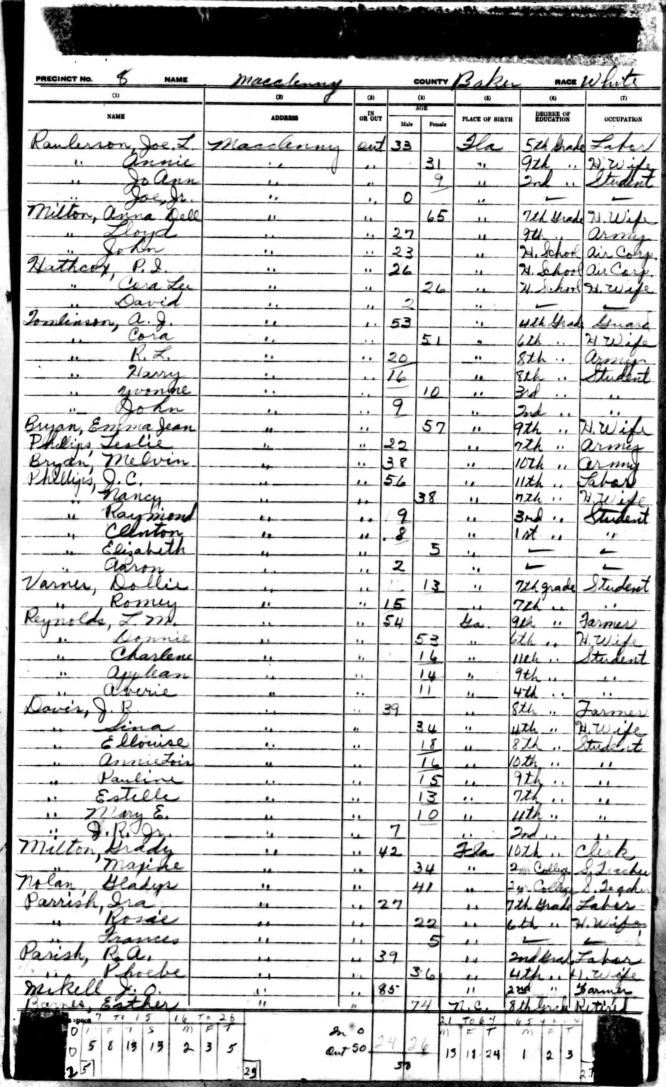 PRECINCT NO. 8 NAME Macclenny COUNTY Baker RACE White
(1) (2) (3) (4) (5) (6) (7)
NAME ADDRESS IN OR OUT AGE Male Female PLACE OF BIRTH DEGREE OF EDUCATION OCCUPATION
Raulerson, Joe L. Macclenny out 33 Fla 5th Grade Labor
" Annie " " 31 " 9th " H. Wife
" Jo Ann " " 9 " 2nd " Student
" Joe, Jr. " " 0 " — —
Milton, Anna Dell " " 65 " 7th Grade H. Wife
" Lloyd " " 27 " 9th " Army
" John " " 23 " H. School Air Corp.
Hathcox, P. I. " " 26 " H. School Air Corp.
" Cora Lee " " 26 " H. School H. Wife
" David " " 2 " — —
Tomlinson, A. J. " " 53 " 4th Grade Guard
" Cora " " 51 " 6th " H Wife
" R. L. " " 20 " 8th " Army
" Harry " " 16 " 8th " Student
" Yvonne " " 10 " 3rd " "
" John " " 9 " 2nd " "
Bryan, Emma Jean " " 57 " 9th " H. Wife
Phillips, Leslie " " 22 " 7th " Army
Bryan, Melvin " " 38 " 10th " Army
Phillips, J. C. " " 56 " 11th " Labor
" Nancy " " 38 " 7th " H. Wife
" Raymond " " 9 " 3rd " Student
" Clinton " " 8 " 1st " "
" Elizabeth " " 5 " — —
" Aaron " " 2 " — —
Varner, Dollie " " 13 " 7th grade Student
" Romey " " 15 " 7th " "
Reynolds, L. M. " " 54 Ga. 9th " Farmer
" " " 53 " 6th " H. Wife
" Charlene " " 16 " 11th " Student
" " " 14 " 9th " "
" Averie " " 11 " 4th " "
Davis, J. R " " 39 " 8th " Farmer
" Lina " " 34 " 4th " H. Wife
" Ellouise " " 18 " 8th " Student
" Annie Lois " " 16 " 10th " "
" Pauline " " 15 " 9th " "
" Estelle " " 13 " 7th " "
" Mary E. " " 10 " 4th " "
" J. R. Jr. " " 7 " 2nd " "
Milton, Grady " " 42 Fla 10th " Clerk
" Maxine " " 34 " 2 yr College S. Teacher
Nolan, Gladys " " 41 " 2 yr College S. Teacher
Parrish, Ira " " 27 " 7th Grade Labor
" Rosie " " 22 " 6th " H. Wife
" Frances " " 5 " — —
Parish, R. A. " " 39 " 2nd Grade Labor
" Phoebe " " 36 " 4th " H. Wife
Mikell J. O. " " 85 " 2nd " Farmer
Barnes, Esther " " 74 N.C. 8th Grade Retired
7 TO 15 16 TO 20 21 TO 64
M F T M F T M F T
In 0
Out 50
5 8 13 13 2 3 5 24 26 13 11 24 1 2 3
50